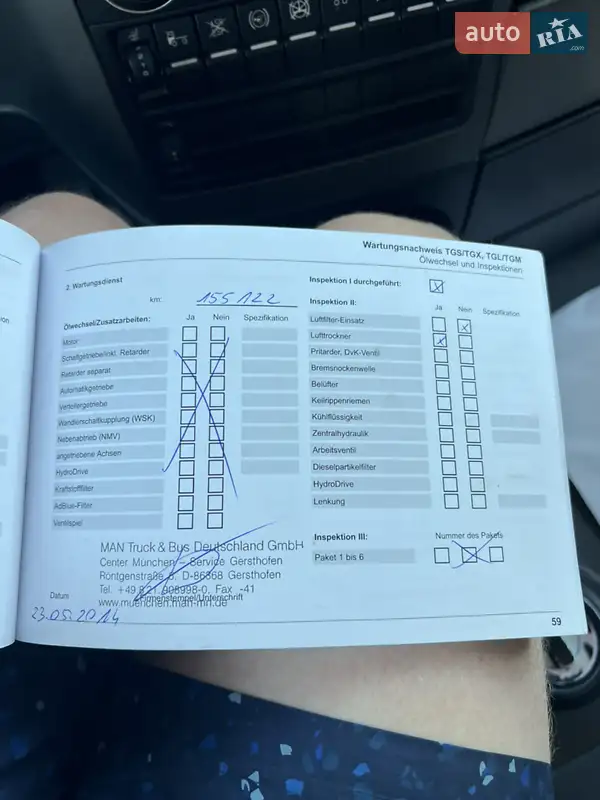 auto RIA .com
Wartungsnachweis TGS/TGX, TGL/TGM
Ölwechsel und Inspektionen
2. Wartungsdienst
km: 155 122
Ölwechsel/Zusatzarbeiten: Ja Nein Spezifikation
Motor
Schaltgetriebe/inkl. Retarder
Retarder separat
Automatikgetriebe
Verteilergetriebe
Wandlerschaltkupplung (WSK)
Nebenabtrieb (NMV)
angetriebene Achsen
HydroDrive
Kraftstofffilter
AdBlue-Filter
Ventilspiel
MAN Truck & Bus Deutschland GmbH
Center München – Service Gersthofen
Röntgenstraße 8, D-86368 Gersthofen
Fax -41
www.muenchen.man-mn.de
Datum Firmenstempel/Unterschrift
23.05.2014
Inspektion I durchgeführt: X
Inspektion II: Ja Nein Spezifikation
Luftfilter-Einsatz X
Lufttrockner X
Pritarder, DvK-Ventil
Bremsnockenwelle
Belüfter
Keilrippenriemen
Kühlflüssigkeit
Zentralhydraulik
Arbeitsventil
Dieselpartikelfilter
HydroDrive
Lenkung
Inspektion III: Nummer des Pakets
Paket 1 bis 6
59